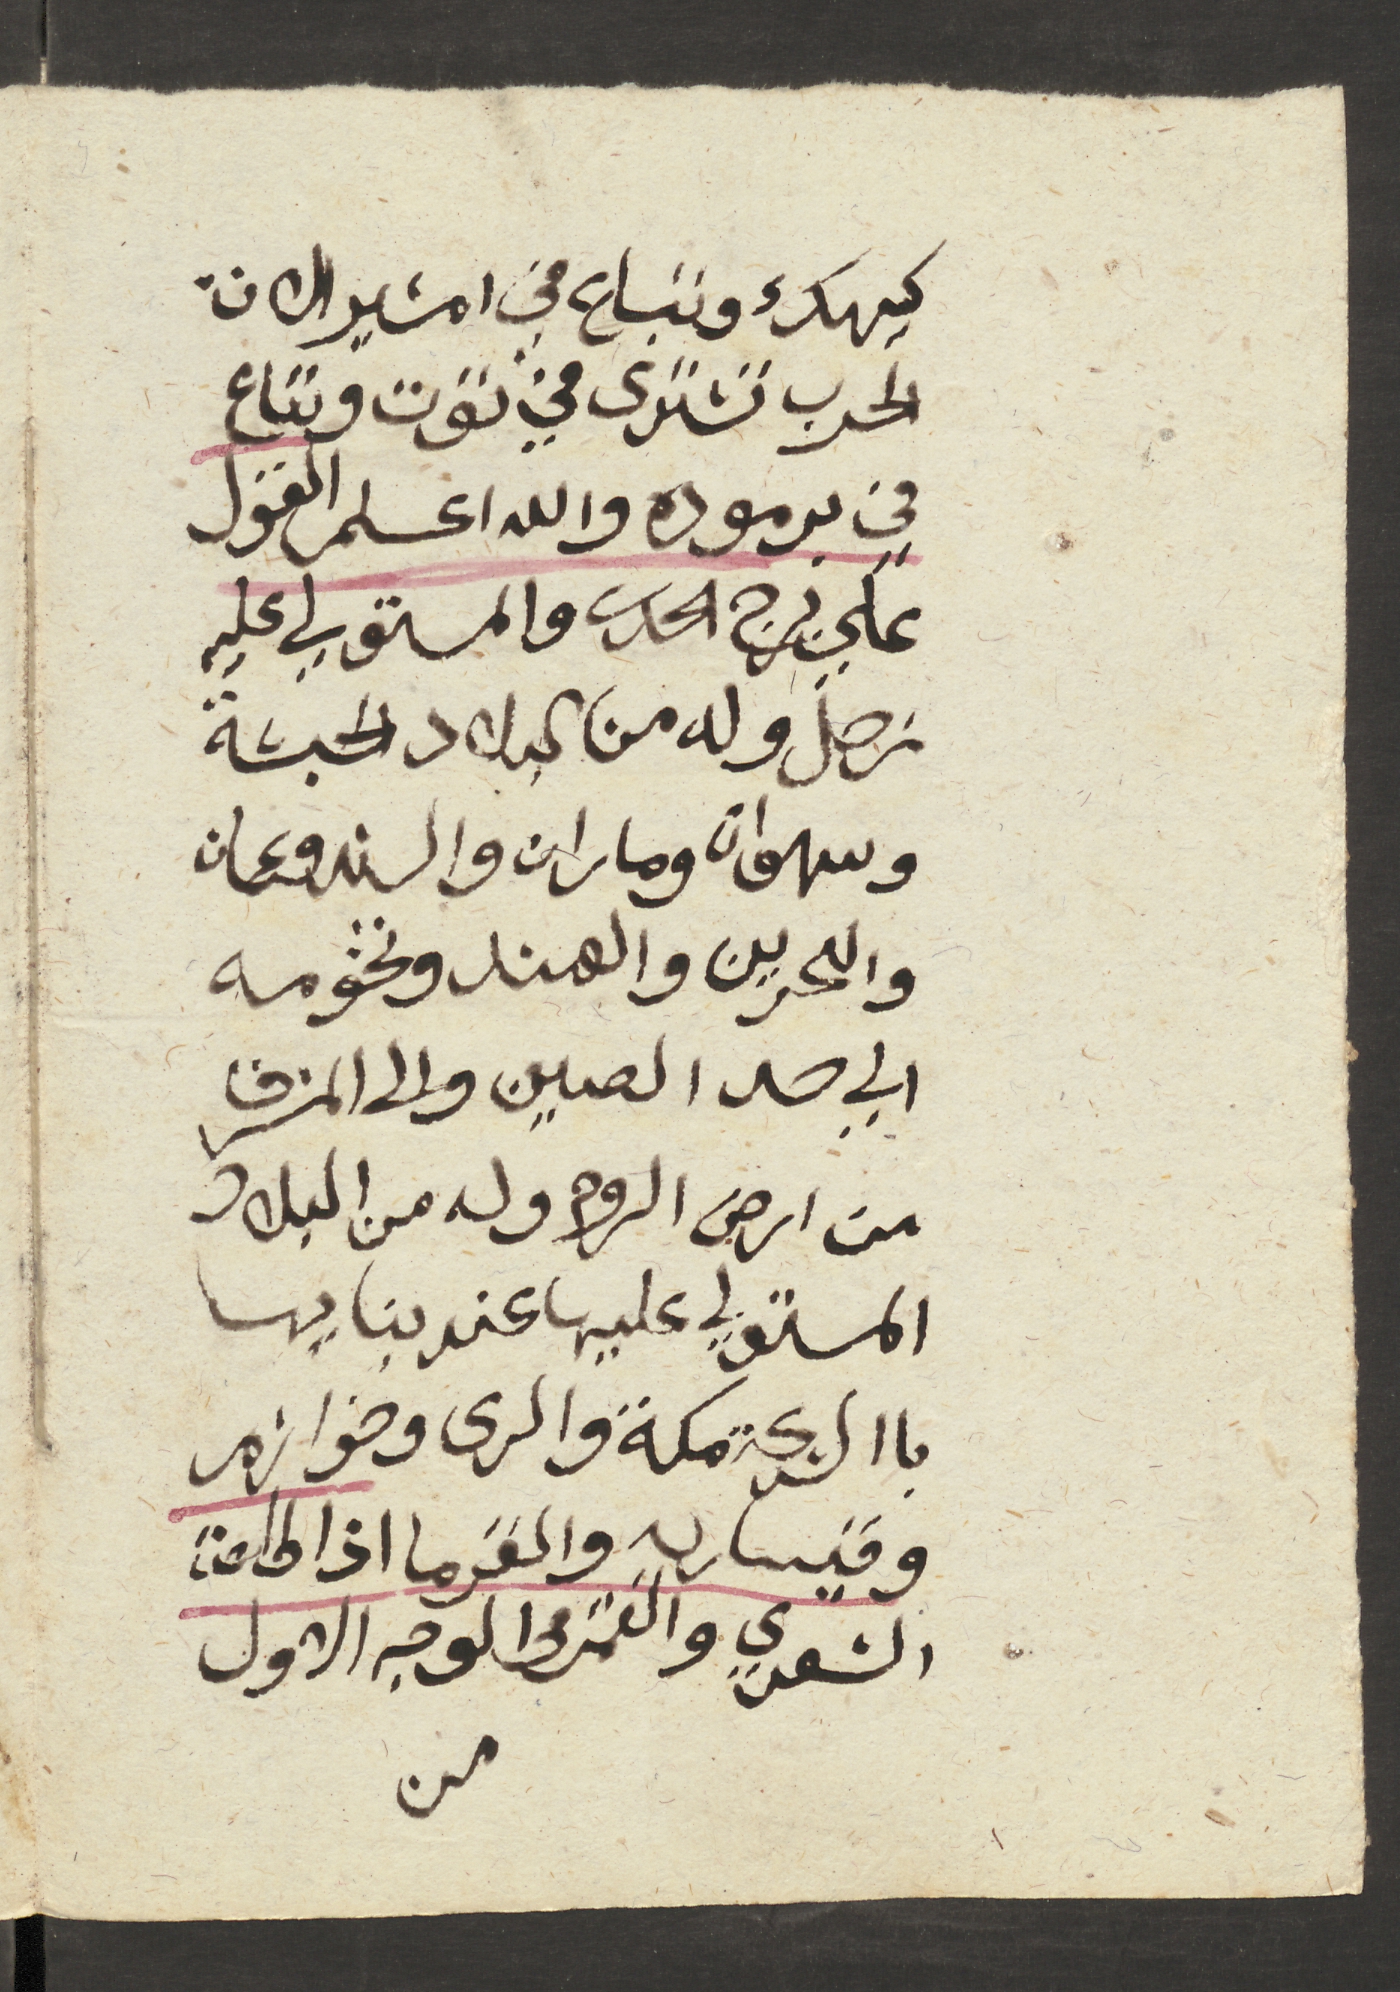 كيهك وتباع في امشير الات
الحرب تشترى في توت وتباع
في برموده والله اعلم القول
علي برج الجدى والمستولي عليه
زحل وله من البلاد الحبشة
وسهوان وماران والسند وعمان
والبحرين والهند وتخومه
الي حد الصين والى المشرق
من ارض الروم وله من البلاد
المستولي عليها عند بنايها
باالدرجة مكة والرى وخوارزم
وقيساريه والفرما اذا طلعت
الشعري والقمر في الوجه الاول
من